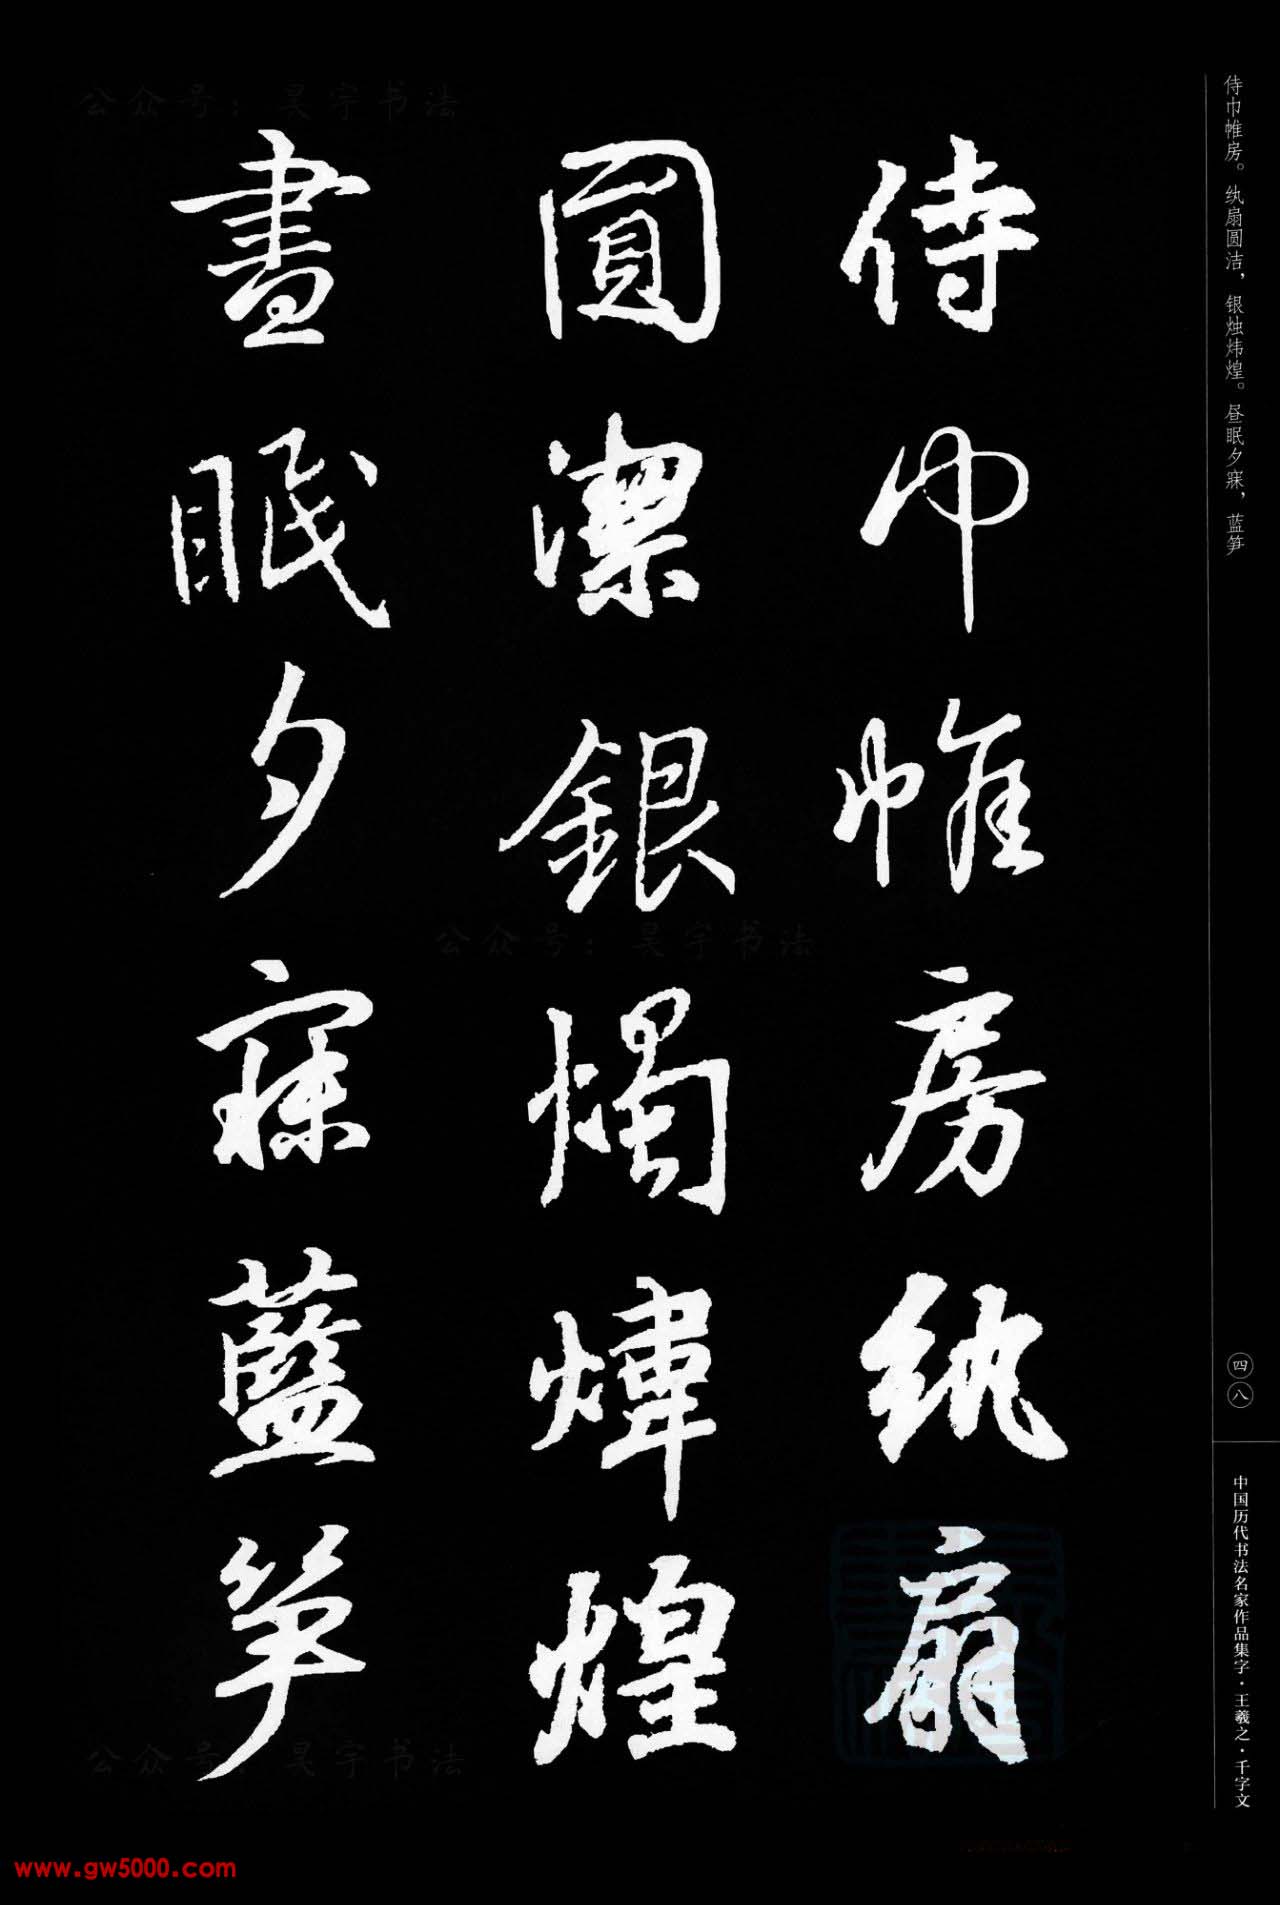 侍巾帷房纨扇
圓潔銀燭煒煌
晝眠夕寐藍笋
侍巾帷房。纨扇圆洁，银烛炜煌。昼眠夕寐，蓝笋
四八
中国历代书法名家作品集字·王羲之·千字文
公众号：昊宇书法
公众号：昊宇书法
公众号：昊宇书法
www.gw5000.com